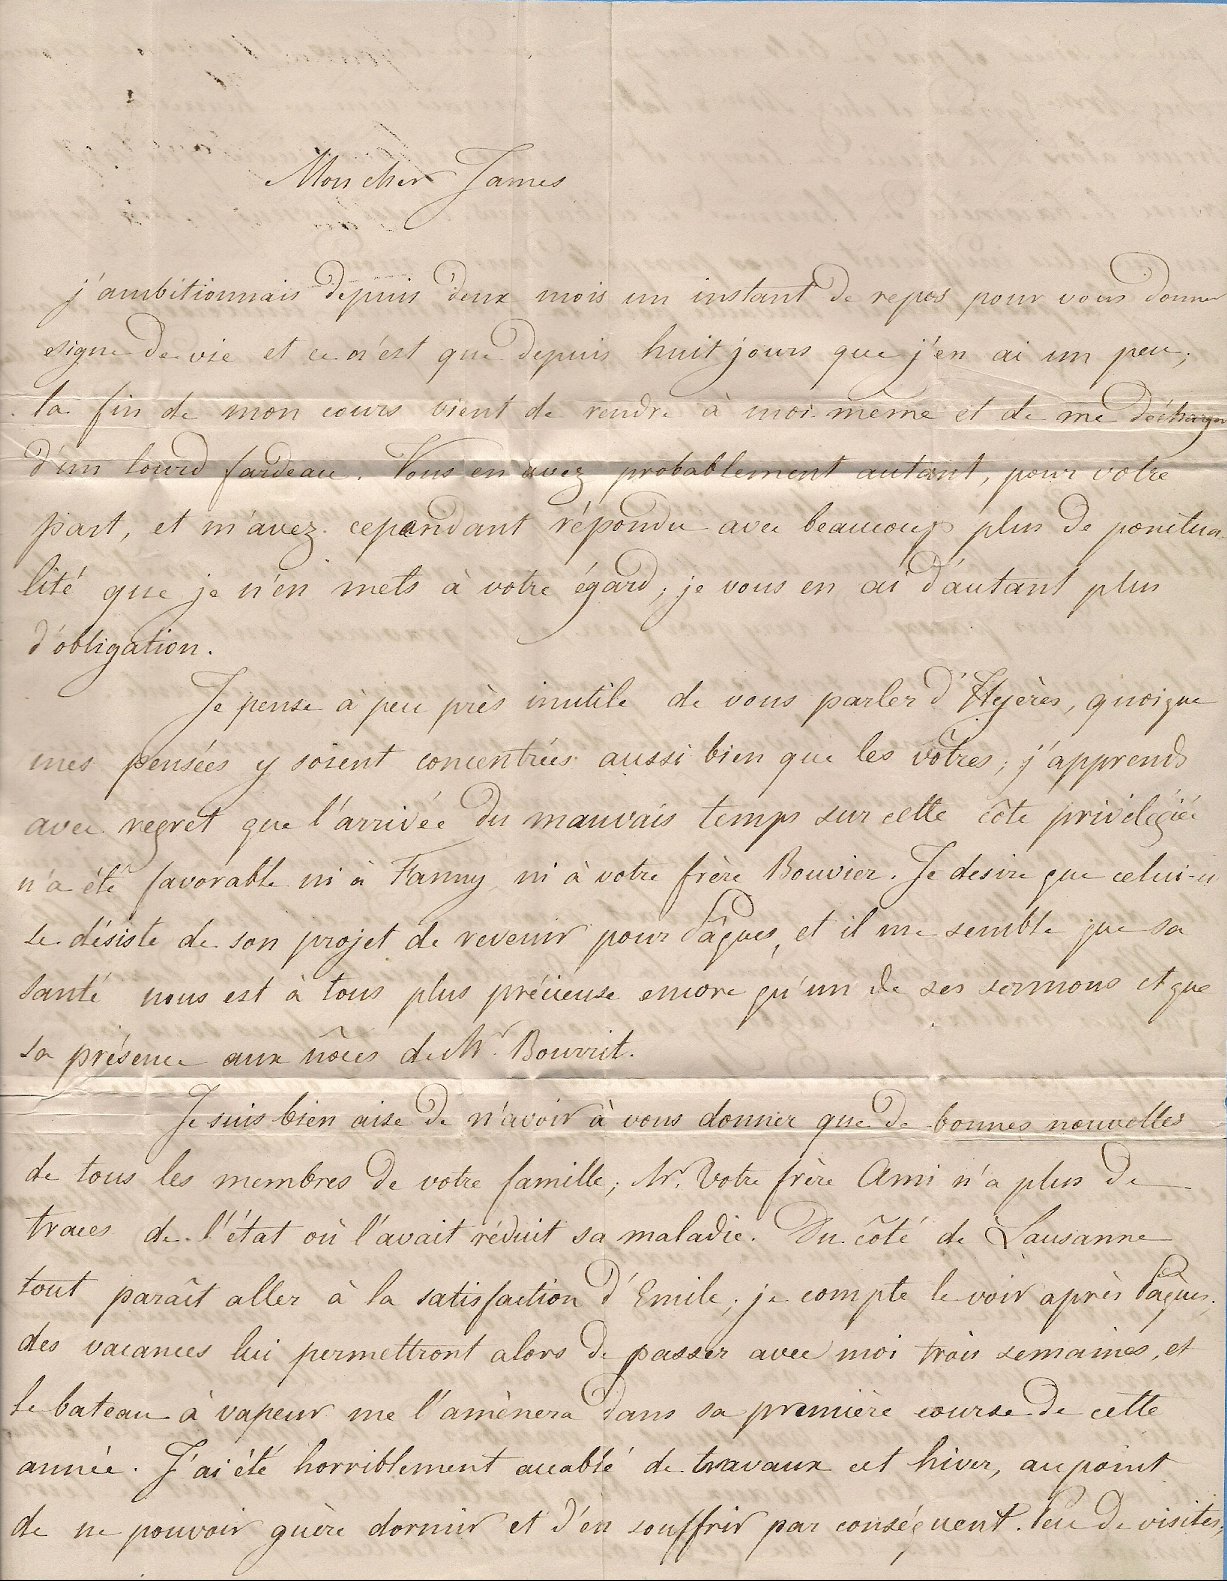 Mon cher James
j'ambitionnais depuis deux mois un instant de repos pour vous donner
signe de vie et ce n'est que depuis huit jours que j'en ai un peu;
la fin de mon cours vient de rendre à moi même et de me décharger
d'un lourd fardeau. Vous en avez probablement autant, pour votre
part, et m'avez cependant répondu avec beaucoup plus de ponctua-
lité que je n'en mets à votre égard; je vous en ai d'autant plus
d'obligation.
Je pense à peu près inutile de vous parler d'Hyères, quoique
mes pensées y soient concentrées aussi bien que les vôtres; j'apprends
avec regret que l'arrivée du mauvais temps sur cette côte privilégiée
n'a été favorable ni à Fanny ni à votre frère Bouvier. Je desire que celui-ci
se désiste de son projet de revenir pour Pâques, et il me semble que sa
santé nous est à tous plus précieuse encore qu'un de ses sermons et que
sa présence aux nôces de Mr. Bourrit.
Je suis bien aise de n'avoir à vous donner que de bonnes nouvelles
de tous les membres de votre famille; Mr. Votre frère Ami n'a plus de
traces de l'état où l'avait réduit sa maladie. Du côté de Lausanne
tout paraît aller à la satisfaction d'Emile; je compte le voir après Pâques;
des vacances lui permettront alors de passer avec moi trois semaines, et
le bateau à vapeur me l'amènera dans sa première course de cette
année. J'ai été horriblement accablé de travaux cet hiver, au point
de ne pouvoir guère dormir et d'en souffrir par conséquent. Peu de visites,